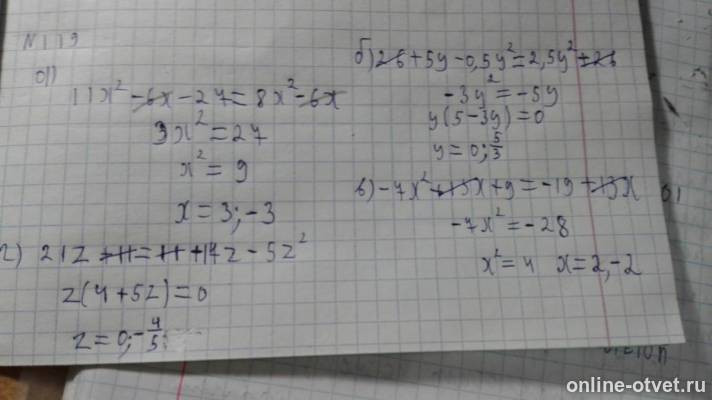 N 119
а)
11x² - 6x - 27 = 8x² - 6x
3x² = 27
x² = 9
x = 3; -3
б) 26 + 5y - 0,5y² = 2,5y² + 26
-3y² = -5y
y(5-3y) = 0
y = 0; 5/3
в) -7x² + 13x + 9 = -19 + 13x
-7x² = -28
x² = 4 x = 2, -2
г) 21z + 11 = 11 + 17z - 5z²
z(4+5z) = 0
z = 0; -4/5;
online-otvet.ru